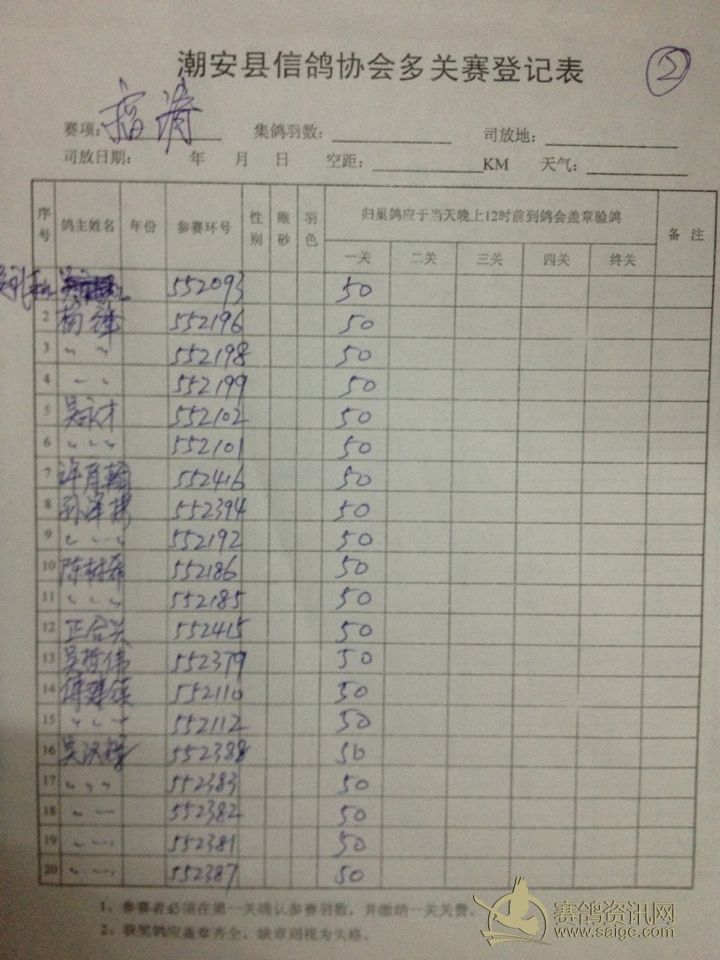 潮安县信鸽协会多关赛登记表 ②
赛项: 福清 集鸽羽数: 司放地:
司放日期: 年 月 日 空距: KM 天气:
序号 鸽主姓名 年份 参赛环号 性别 眼砂 羽色 归巢鸽应于当天晚上12时前到鸽会盖章验鸽 备注
一关 二关 三关 四关 终关
552093 50
2 杨锋 552196 50
3 〃 〃 552198 50
4 〃 〃 552199 50
5 吴永才 552102 50
6 〃 〃 〃 552101 50
7 许育翰 552416 50
8 552394 50
9 〃 〃 〃 552192 50
10 552186 50
11 〃 〃 〃 552185 50
12 正合兴 552415 50
13 吴哲伟 552379 50
14 552110 50
15 〃 〃 〃 552112 50
16 552388 50
17 〃 〃 〃 552383 50
18 〃 〃 〃 552382 50
19 〃 〃 〃 552381 50
20 〃 〃 〃 552387 50
1、参赛者必须在第一关确认参赛羽数，并缴纳一关关费。
2、获奖鸽应盖章齐全，缺章则视为失格。
赛鸽资讯网
www.saige.com